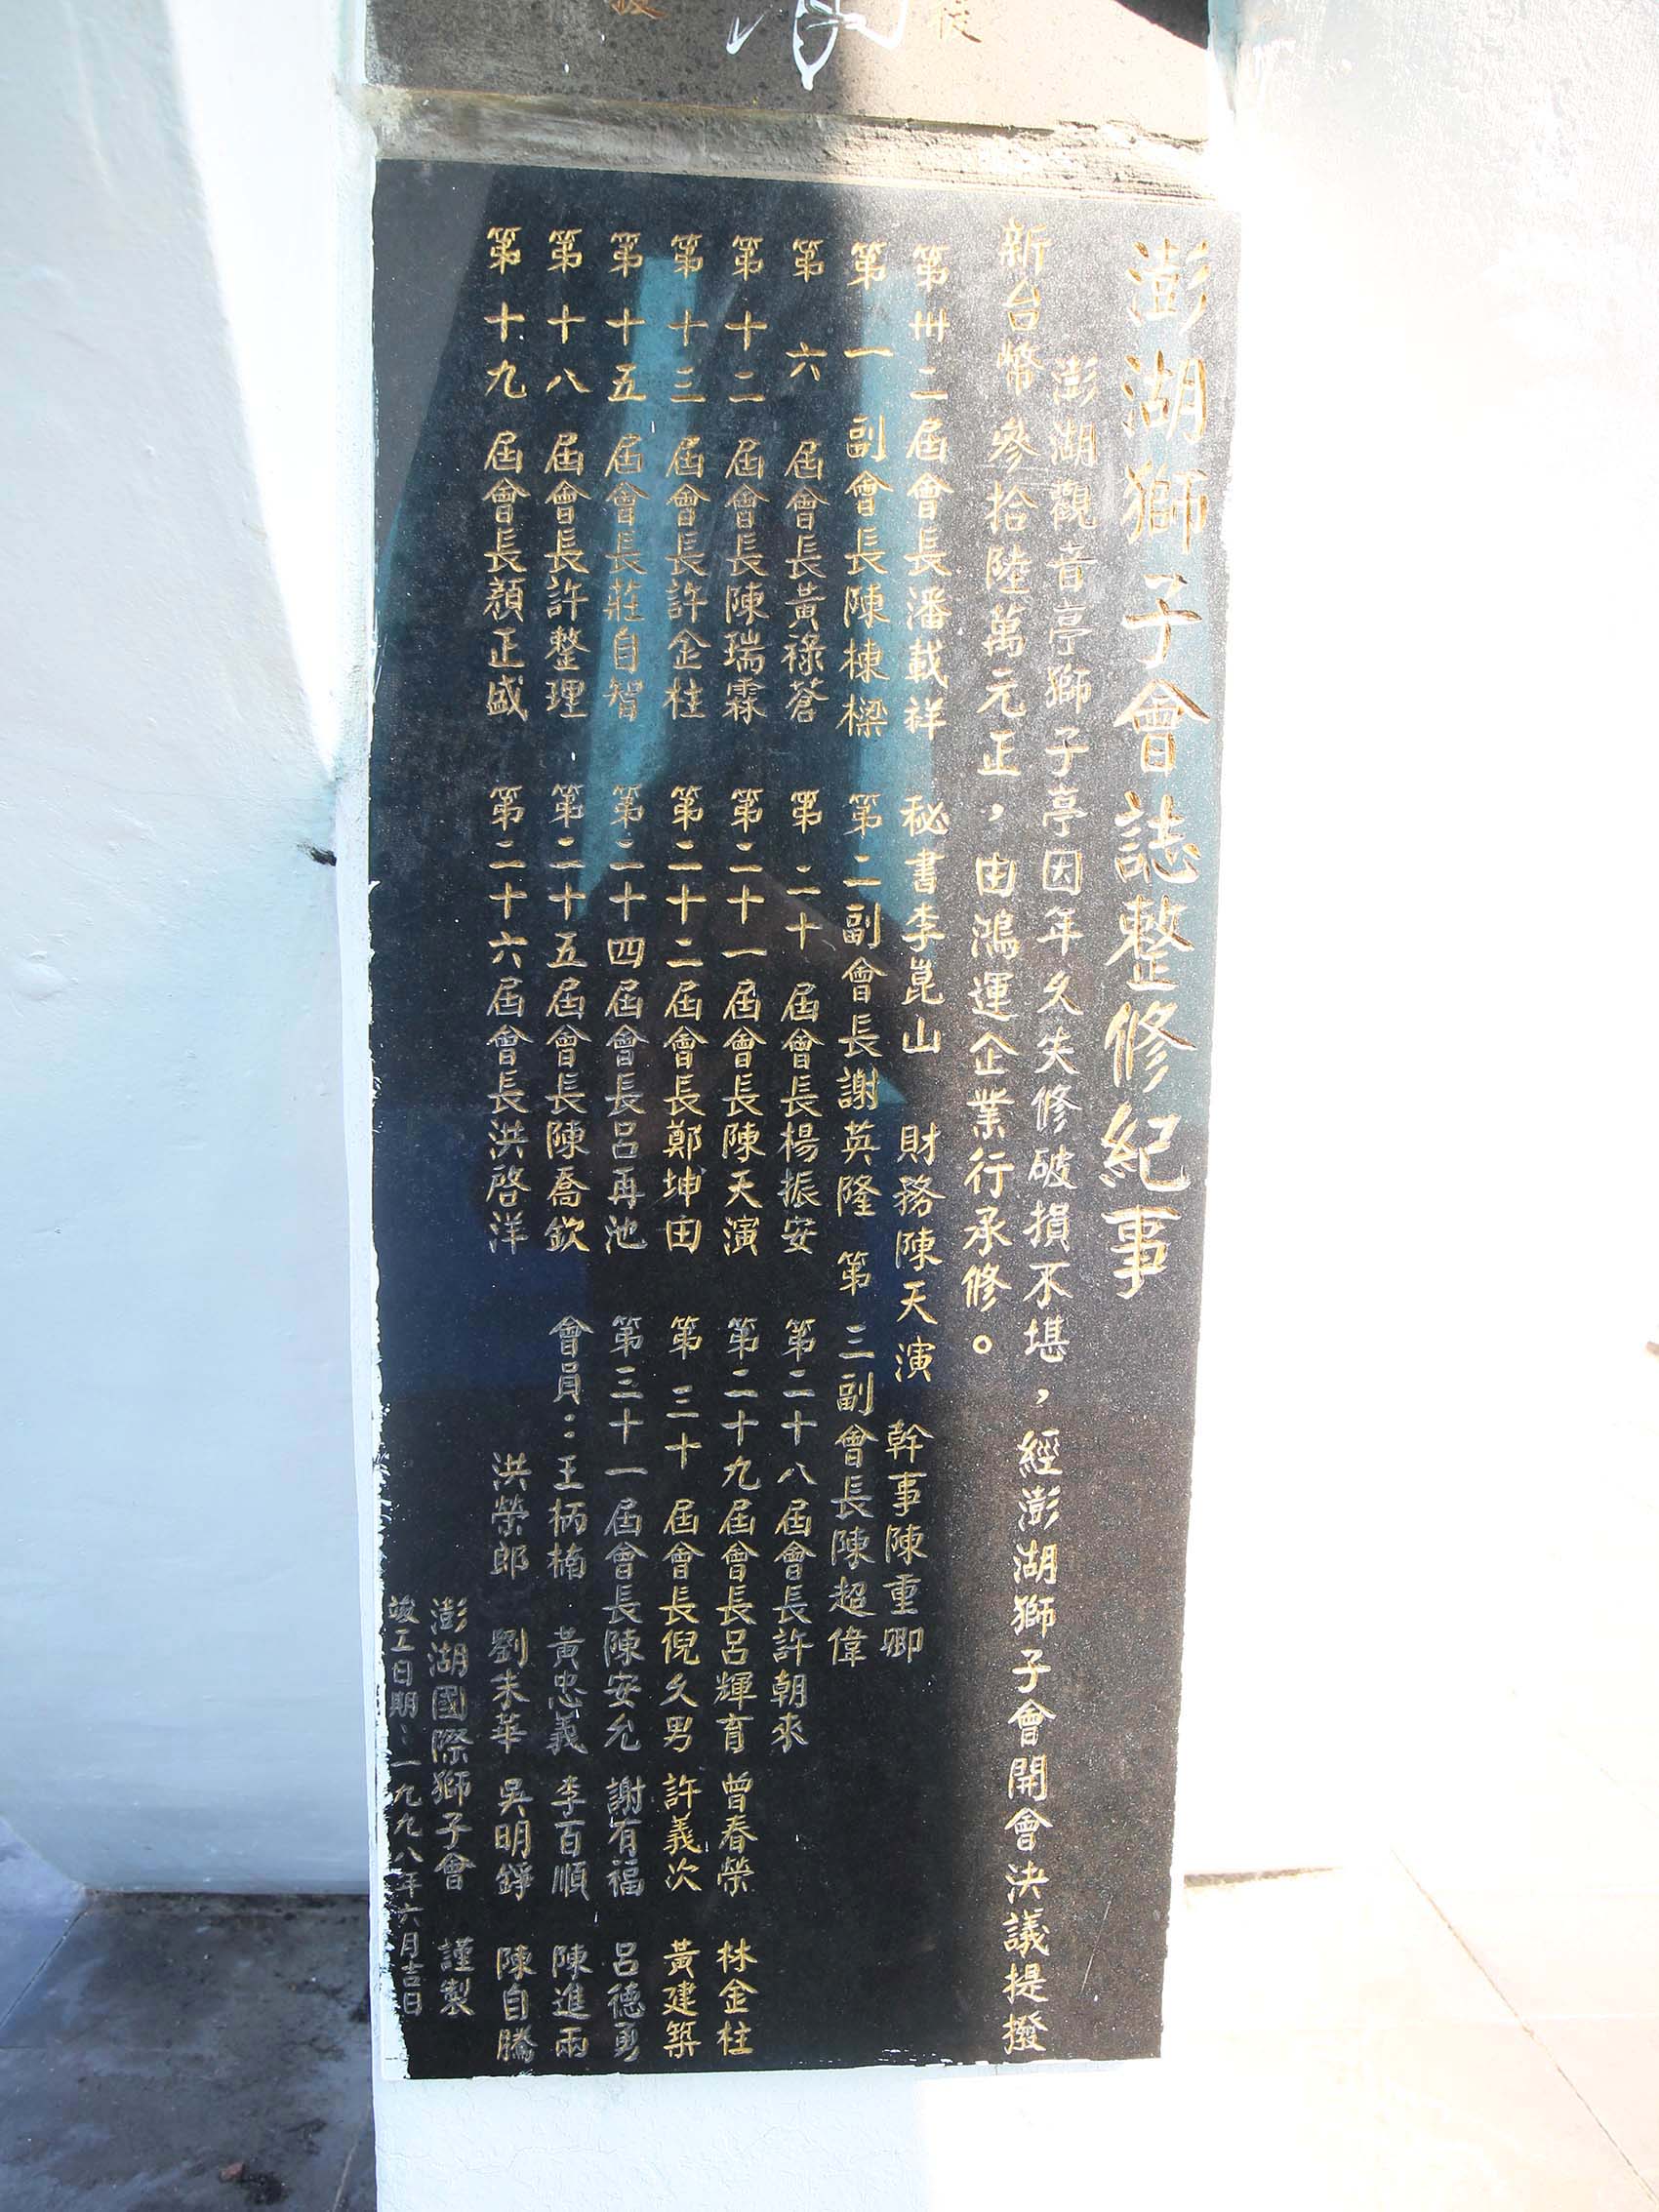 澎湖獅子會誌整修紀事
澎湖觀音亭獅子亭因年久失修破損不堪，經澎湖獅子會開會決議提撥
新台幣參拾陸萬元正，由鴻運企業行承修。
第卅二屆會長潘載祥 秘書李崑山 財務陳天演 幹事陳重卿
第一副會長陳棟樑 第二副會長謝英隆 第三副會長陳超偉
第六屆會長黃祿蒼 第二十屆會長楊振安 第二十八屆會長許朝來
第十二屆會長陳瑞霖 第二十一屆會長陳天演 第二十九屆會長呂輝育 曾春榮 林金柱
第十三屆會長許企柱 第二十二屆會長鄭坤田 第三十屆會長倪久男 許義次 黃建築
第十五屆會長莊自智 第二十四屆會長呂再池 第三十一屆會長陳安允 謝有福 呂德勇
第十八屆會長許整理 第二十五屆會長陳喬欽 會員：王柄楠 黃忠義 李百順 陳進兩
第十九屆會長顏正盛 第二十六屆會長洪啓洋 洪榮郎 劉朱華 吳明錚 陳自騰
澎湖國際獅子會 謹製
竣工日期：一九九八年六月吉日